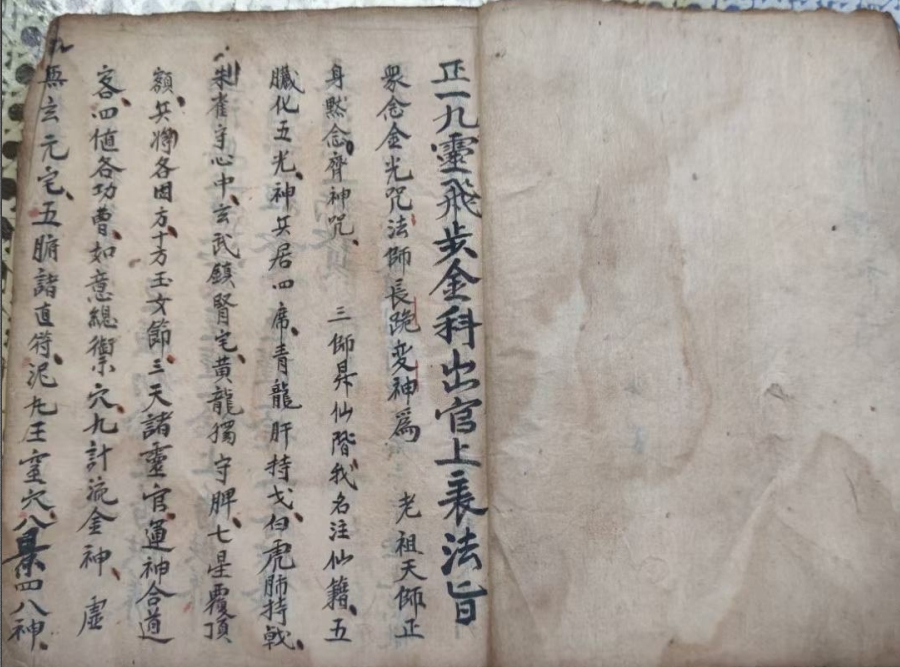 正一九靈飛步金科出官上表法旨
衆念金光咒法師長跪变神爲 老祖天師正
身黙念齊神咒、 三師昇仙階我名注仙籍、五
臟化五光、神兵居四席、青龍肝持戈、白虎肺持戟、
朱雀守心中、玄武鎮腎宅、黄龍獨守脾、七星覆頂
額、兵將各因方、十方玉女節、三天諸靈官、運神合道
客、四值各功曹、如意總衘 穴九計流金神、虛
無玄元宅、五腑諸直符、泥丸王室穴、八景四八神、